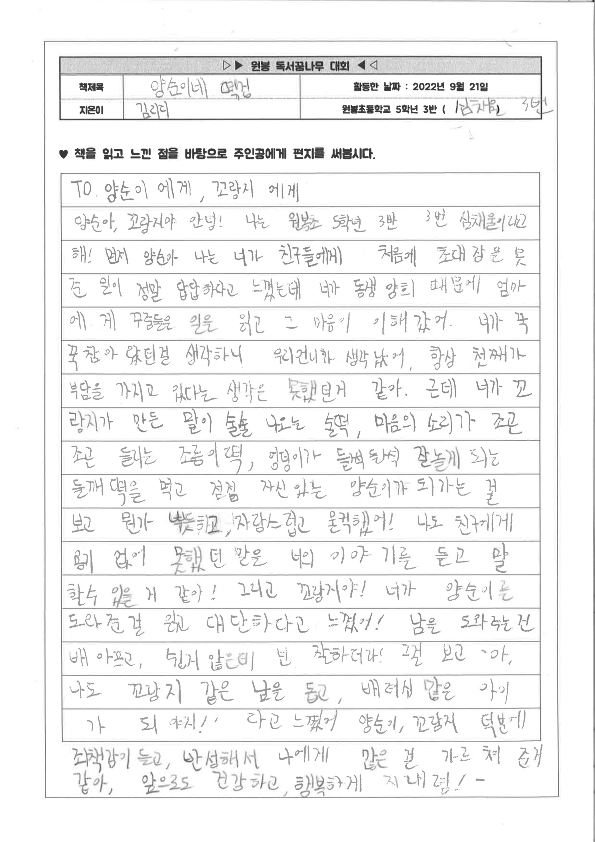 ▷▶ 원봉 독서꿈나무 대회 ◀◁
책제목 양순이네 떡집 활동한 날짜 : 2022년 9월 21일
지은이 김리리 원봉초등학교 5학년 3반 ( 심채울 ) 3번
♥ 책을 읽고 느낀 점을 바탕으로 주인공에게 편지를 써봅시다.
TO. 양순이 에게, 꼬랑지 에게
양순아, 꼬랑지야 안녕! 나는 원봉초 5학년 3반 3번 심채울이라고
해! 먼저 양순아 나는 너가 친구들에게 처음에 초대장을 못
준 일이 정말 답답하다고 느꼈는데 너가 동생 양희 때문에 엄마
에게 꾸중들은 일을 읽고 그 마음이 이해 갔어. 너가 꾹
꾹 참아 왔던걸 생각하니 우리언니가 생각났어, 항상 첫째가
부담을 가지고 있다는 생각은 못했던거 같아. 근데 너가 꼬
랑지가 만든 말이 술술 나오는 술떡, 마음의 소리가 조곤
조곤 들리는 조롱이떡, 엉덩이가 들썩들썩 잘놀게 되는
들깨떡을 먹고 점점 자신있는 양순이가 되가는 걸
보고 뭔가 뿌듯하고, 자랑스럽고 울컥했어! 나도 친구에게
용기 없어 못했던 말은 너의 이야기를 듣고 말
할수 있을 거 같아! 그리고 꼬랑지야! 너가 양순이를
도와준걸 읽고 대단하다고 느꼈어! 남을 도와주는건
배 아프고, 쉽지 않은데 넌 착하더라! 그걸 보고 '아,
나도 꼬랑지 같은 남을 돕고, 배려심 많은 아이
가 되야지!' 라고 느꼈어 양순이, 꼬랑지 덕분에
죄책감이 들고, 반성해서 나에게 많은 걸 가르쳐 준거
같아, 앞으로도 건강하고, 행복하게 지내렴! -